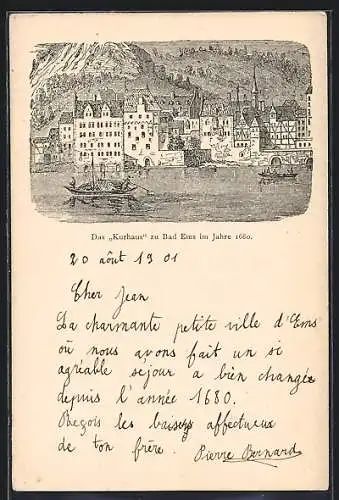 Das „Kurhaus" zu Bad Ems im Jahre 1680.
20 août 1901
Cher Jean
La charmante petite ville d'Ems
où nous avons fait un si
agréable séjour a bien changée
depuis l'année 1680.
Reçois les baisers affectueux
de ton frère. Pierre Bernard